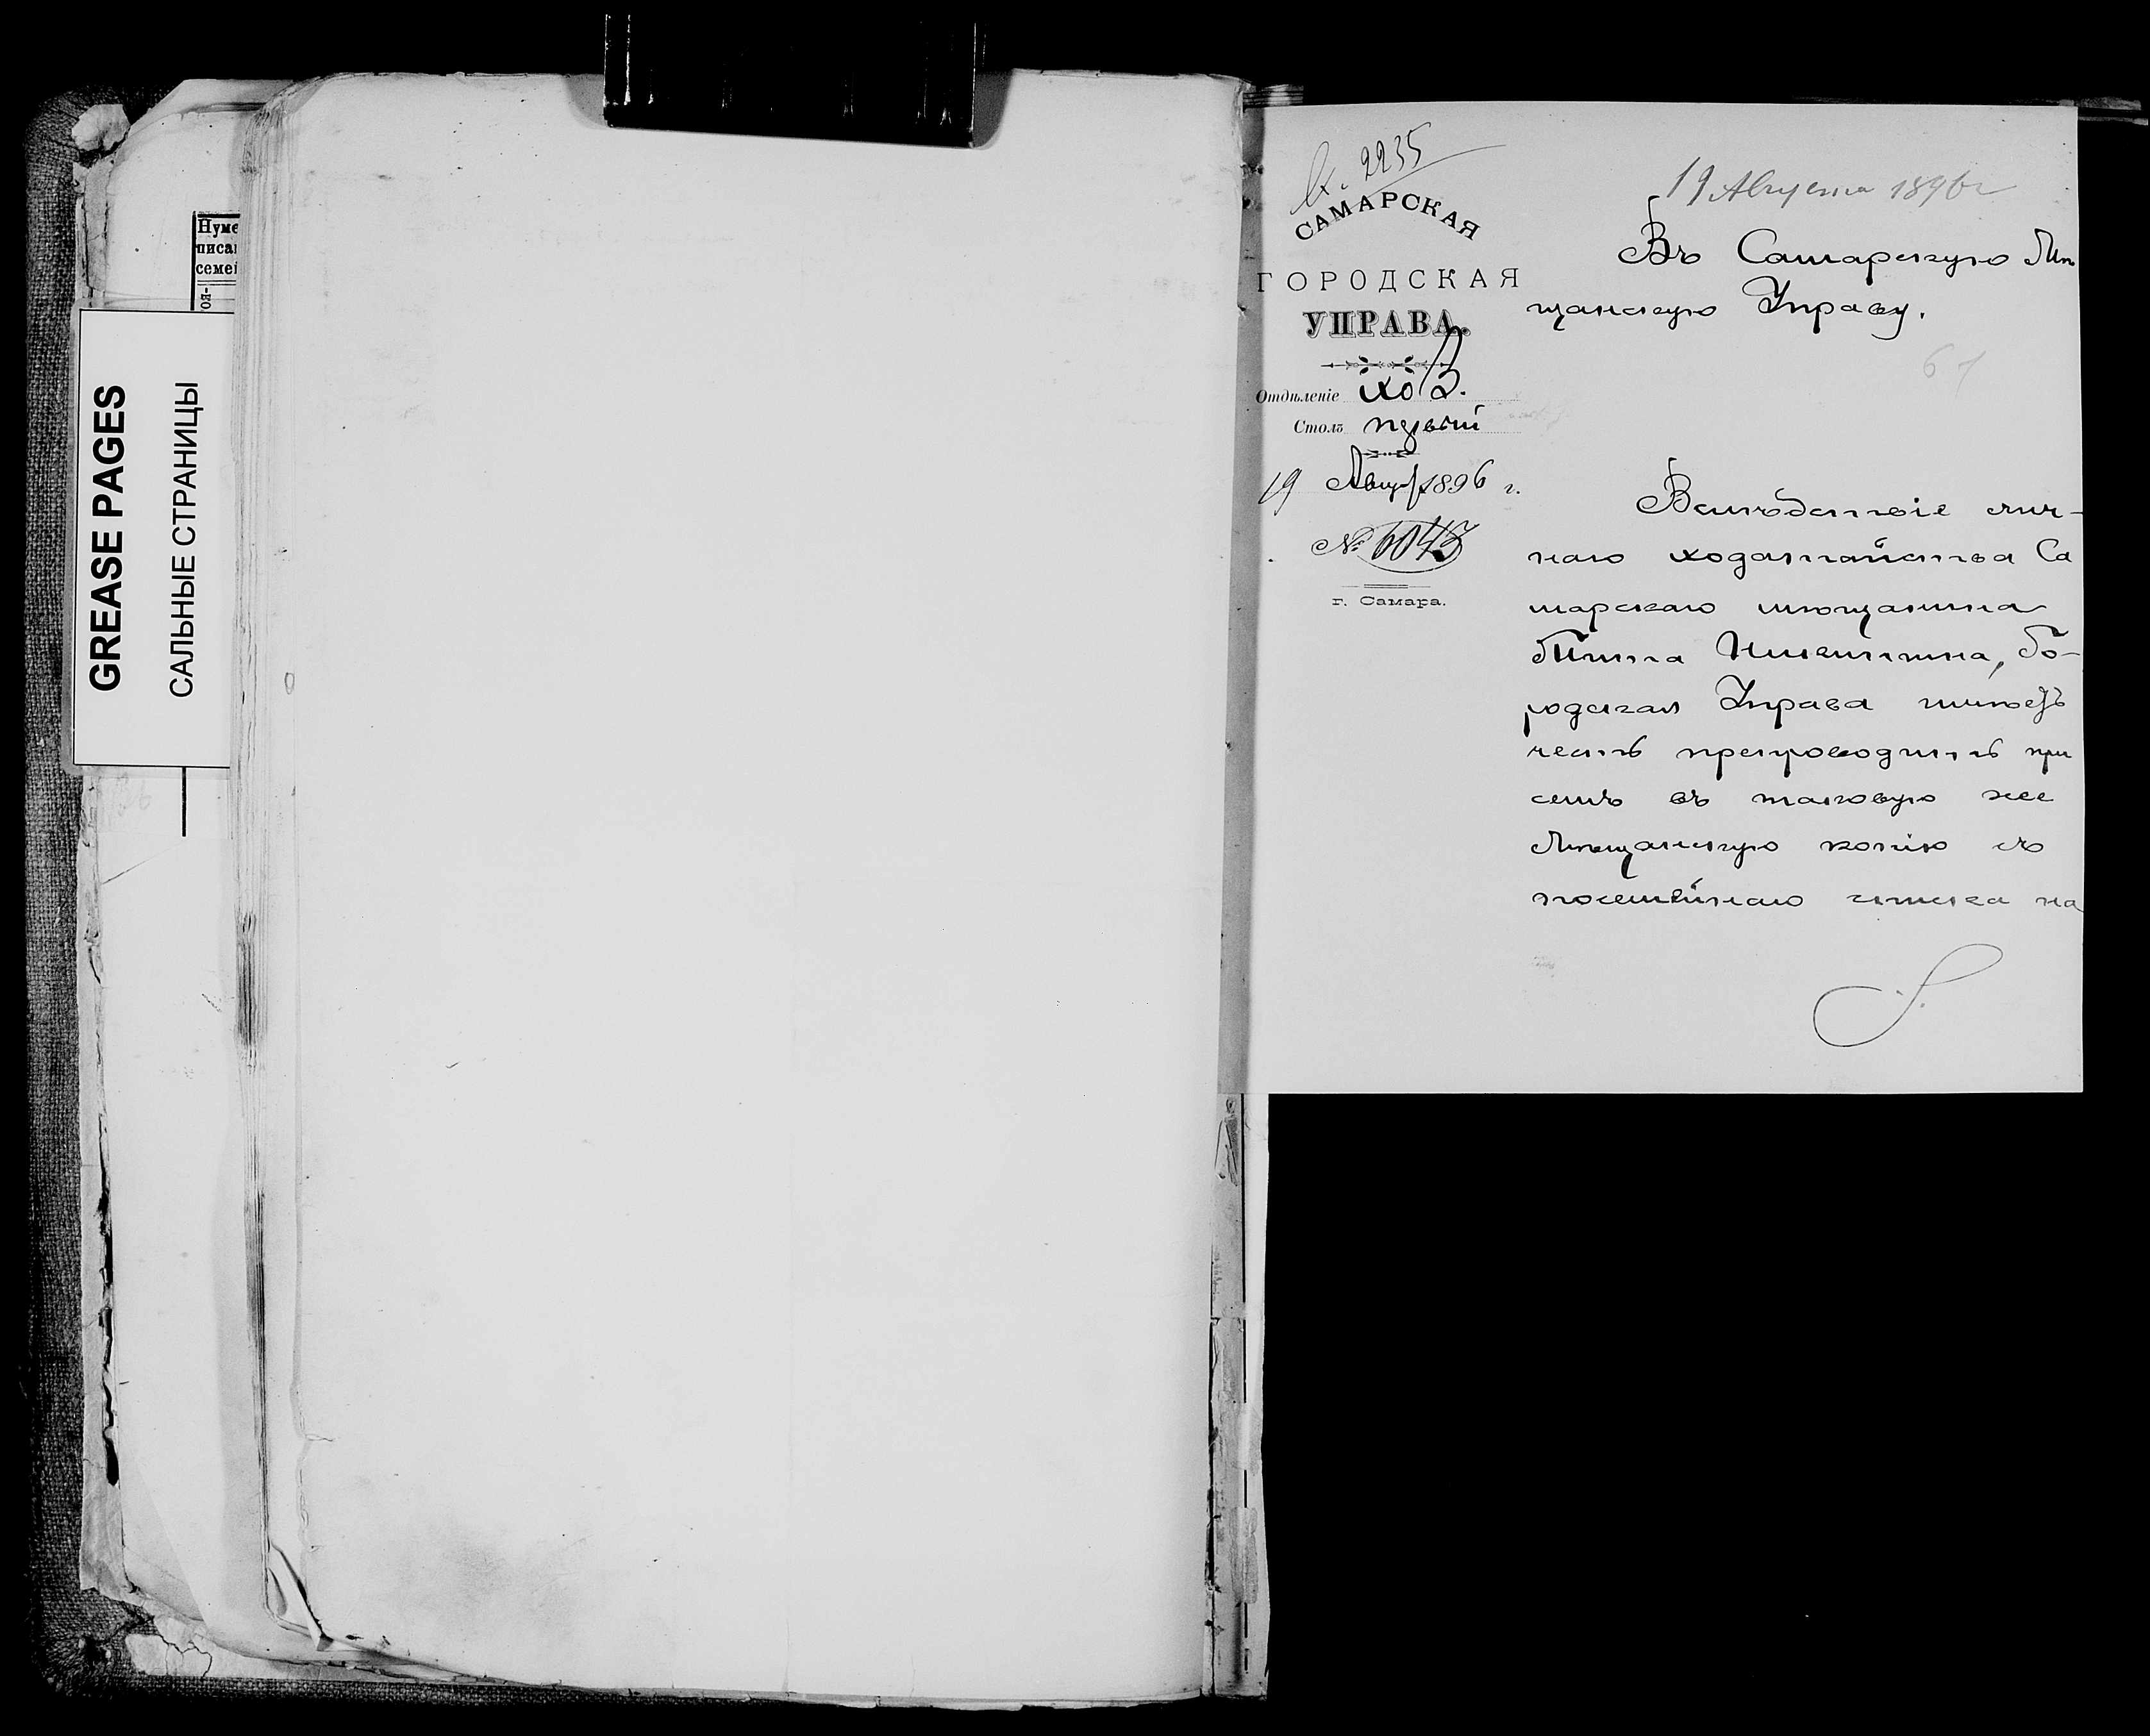 Нуме
писа
семей
-во
GREASE PAGES
САЛЬНЫЕ СТРАНИЦЫ
Вх. 2235
САМАРСКАЯ
ГОРОДСКАЯ
УПРАВА.
Отдѣленіе хоз.
Столъ первый
19 Авгус 1896 г.
№ 6043
г. Самара.
19 Августа 1896 г
Въ Самарскую Мѣ
щанскую Управу.
61
Вслѣдствіе лич-
наго ходатайства Са
марскаго мѣщанина
Никитина, Го-
родская Управа имѣетъ
честь препроводить при
семъ въ таковую же
Мѣщанскую копію съ
посемейнаго списка на